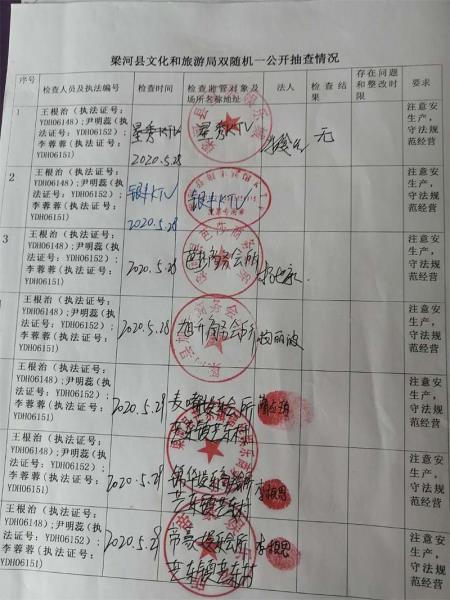 梁河县文化和旅游局双随机一公开抽查情况
序号
检查人员及执法编号
检查时间
检查监管对象及
场所名称地址
法人
检查结
果
存在问题
和整改时
限
要求
1
王根治（执法证号：
YDH06148）;尹明蕊（执
法证号：YDH06152）;
李蓉蓉（执法证号：
YDH06151）
星秀KTV
2020.5.28
星秀KTV
无
注意安
生产，
守法规
范经营
2
王根治（执法证号：
YDH06148）;尹明蕊（执
法证号：YDH06152）;
李蓉蓉（执法证号：
YDH06151）
银丰KTV
2020.5.28
银丰KTV
注意安
生产，
守法规
范经营
3
王根治（执法证号：
YDH06148）;尹明蕊(执
法证号：YDH06152）;
李蓉蓉（执法证号：
YDH06151）
2020.5.28
商务会所
注意安
生产，
守法规
范经营
王根治（执法证号：
YDH06148）;尹明蕊(执
法证号：YDH06152）;
李蓉蓉（执法证号：
YDH06151）
2020.5.28
旭升商务会所
杨丽波
注意安
生产，
守法规
范经营
王根治（执法证号：
YDH06148）;尹明蕊(执
法证号：YDH06152）;
李蓉蓉（执法证号：
YDH06151）
2020.5.29
娱乐会所
芒东镇芒东村
注意安
生产，
守法规
范经营
王根治（执法证号：
YDH06148）;尹明蕊(执
法证号：YDH06152）;
李蓉蓉(执法证号：
YDH06151）
2020.5.29
锦华娱乐会所
芒东镇芒东村
注意安
生产，
守法规
范经营
王根治（执法证号：
YDH06148）;尹明蕊(执
法证号：YDH06152）;
李蓉蓉（执法证号：
YDH06151）
2020.5.29
帝豪娱乐会所
芒东镇芒东村
注意安
生产，
守法规
范经营